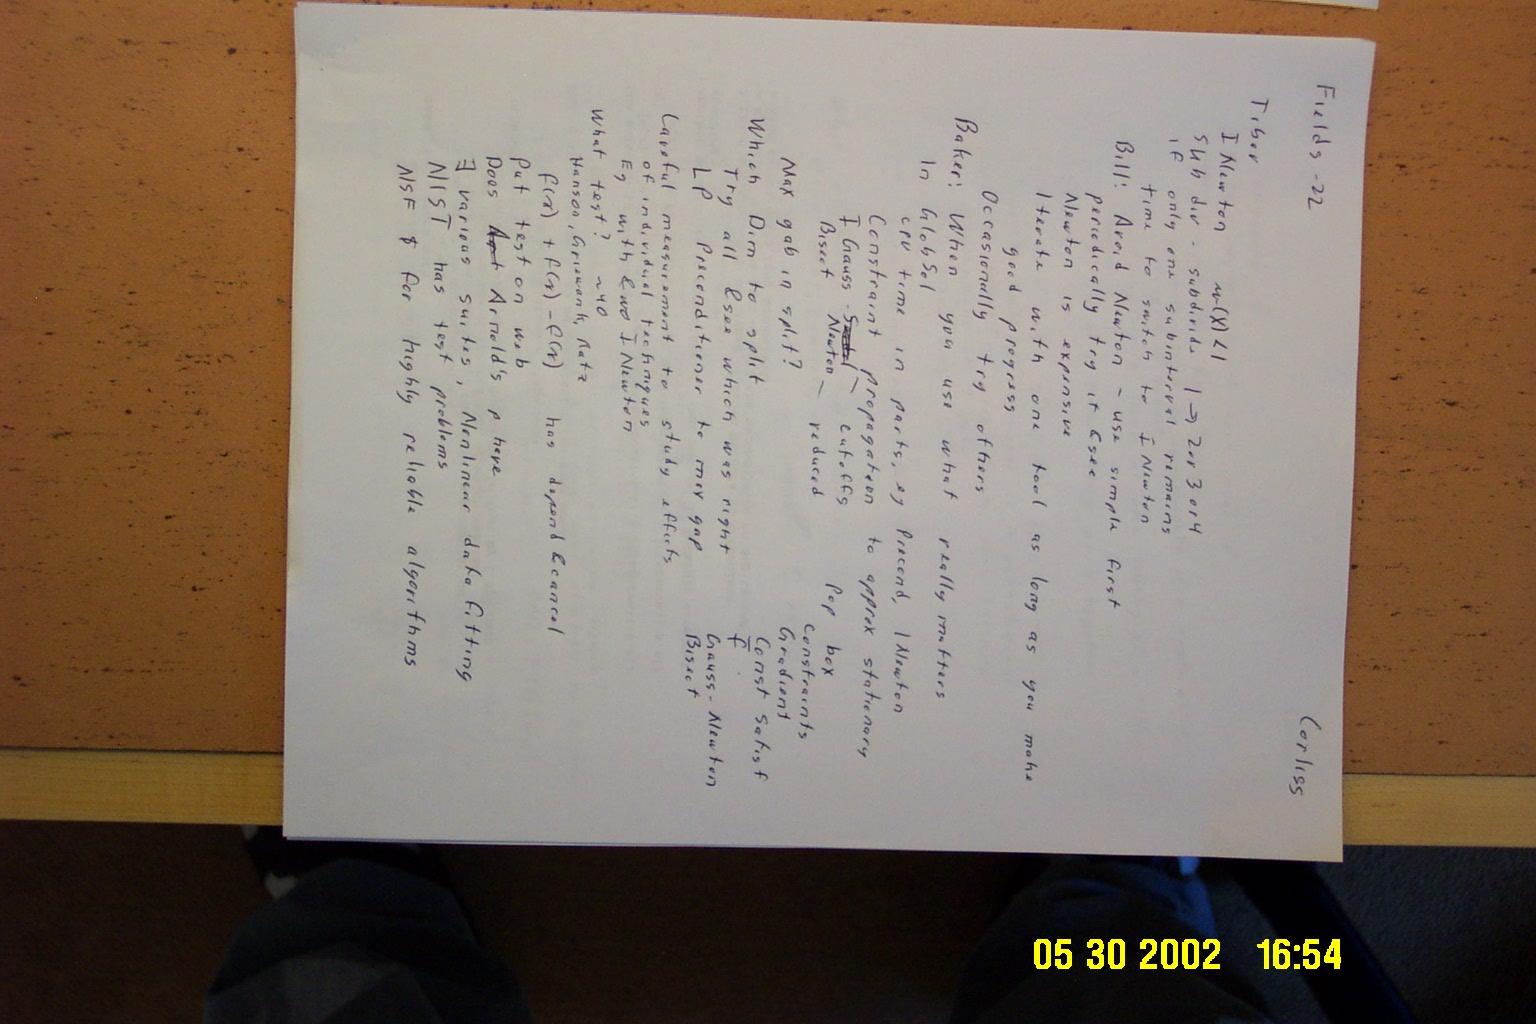 Fields -22
Corliss
Tibor
I Newton w(X) < 1
Subdiv - subdivide 1 → 2 or 3 or 4
if only one subinterval remains
time to switch to I Newton
Bill: Avoid Newton - use simple first
periodically try it & see
Newton is expensive
Iterate with one tool as long as you make
good progress
Occasionally try others
Baker: When you use what really matters
In GlobSol
CPU time in parts, eg Precond, I Newton
Constraint propagation to approx stationary
I Gauss - cutoffs
Bisect Newton - reduced
Pop box
Constraints
Gradient
Const satisf
f
Gauss-Newton
Bisect
Max gab in split?
Which Dim to split
Try all & see which was right
LP Preconditioner to max gap
Careful measurement to study effects
of individual techniques
Eg with & wo I Newton
What test? ~40
Hanson, Griewank, Ratz
f(x) + f(x) - f(x) has depend & cancel
Put test on web
Does Arnold's p have
∃ various suites, Nonlinear data fitting
NIST has test problems
NSF $ for highly reliable algorithms
05 30 2002 16:54